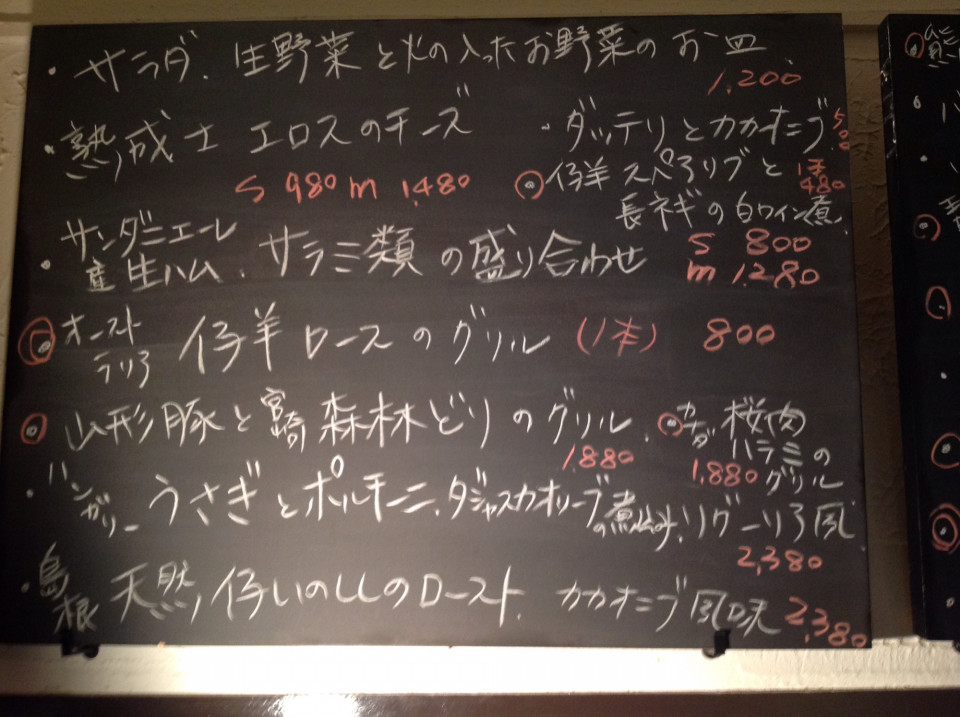 ・サラダ、生野菜と火の入ったお野菜のお皿
1,200
・熟成士 エロスのチーズ
S 980 m 1,480
・ダッテリとカカオニブ
仔羊スペアリブと 1本 480
長ネギの白ワイン煮
・サンダニエーレ
産生ハム、サラミ類の盛り合わせ
S 800
m 1,280
オースト
ラリア 仔羊ロースのグリル (1本) 800
山形豚と宮崎森林どりのグリル
1,880
カナダ 桜肉
ハラミの
1,880 グリル
・ハンガリー うさぎとポルチーニ、ダジャスカオリーブの煮込み、リグーリア風
2,380
・島根 天然仔いのししのロースト、カカオニブ風味 2,380
熊